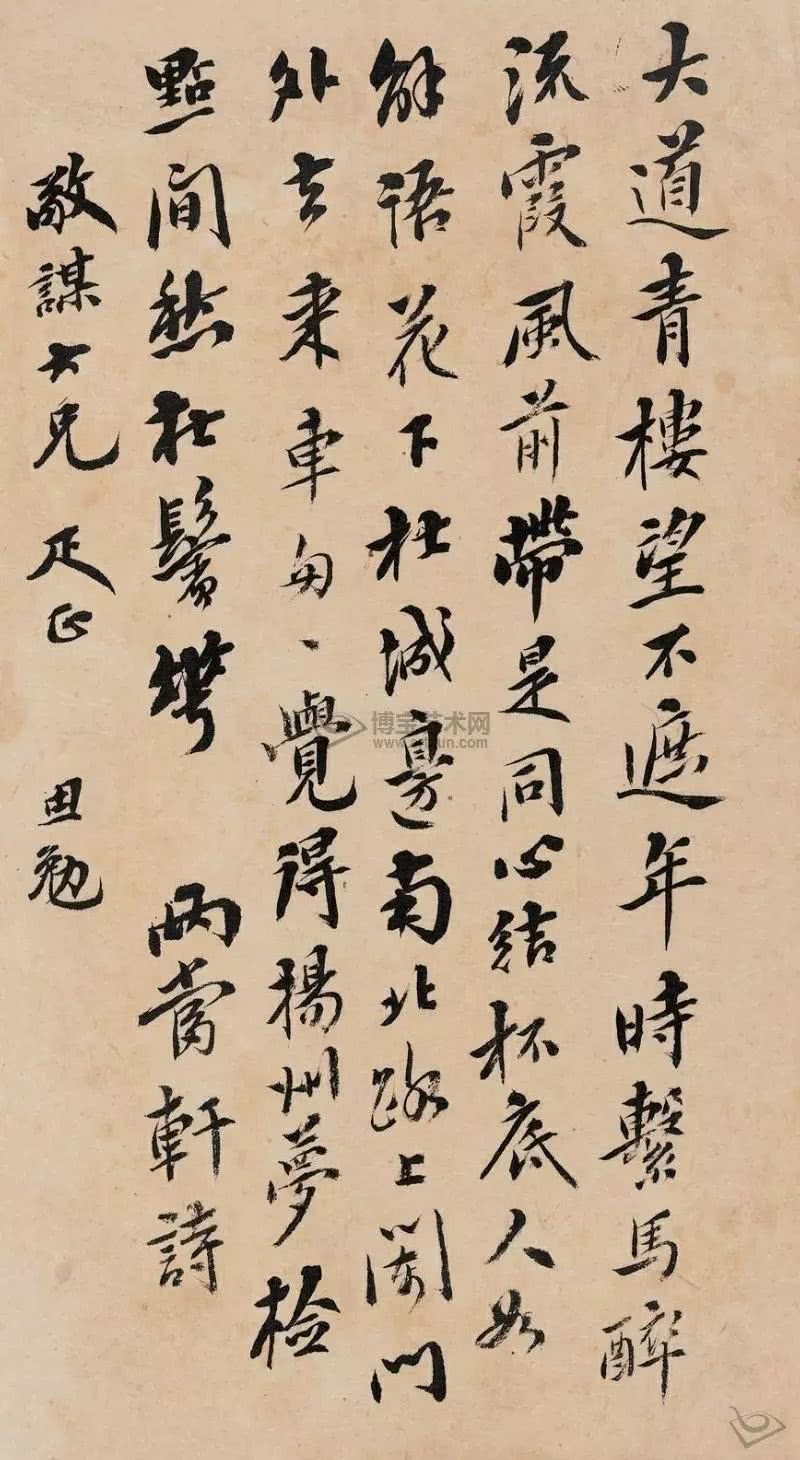 大道青樓望不遮年時繫馬醉
流霞風前帶是同心結杯底人如
解語花下杜城邊南北路上闌門
外去來車匆〻覺得揚州夢檢
點間愁在鬢華 兩當軒詩
敬謀大兄 疋正
博宝艺术网
www.artxun.com